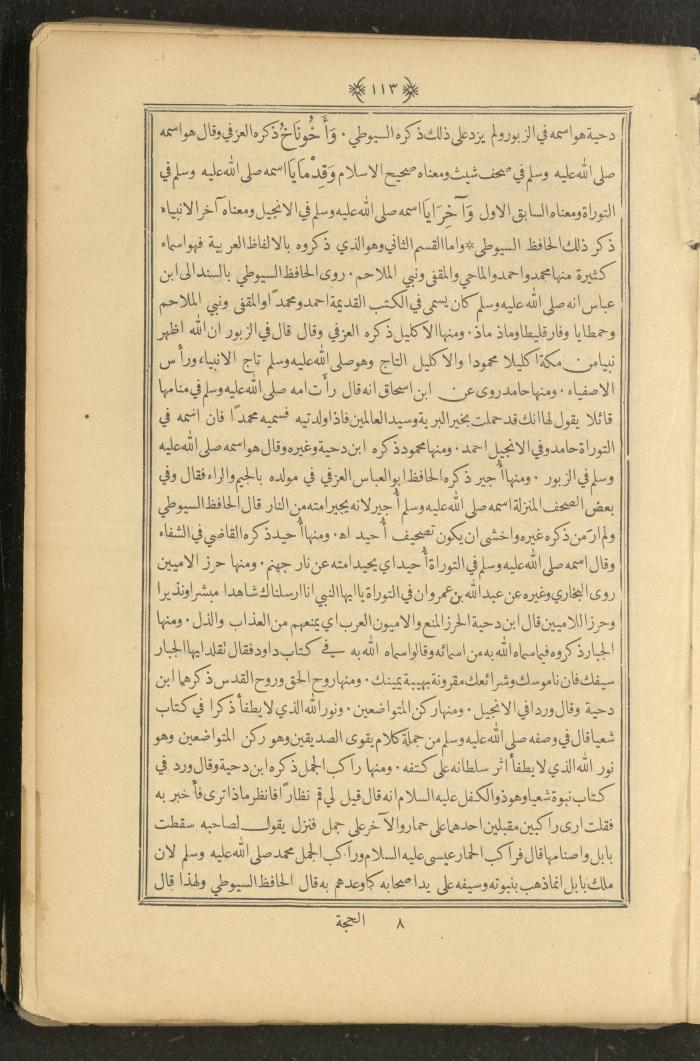 ﴿١١٣﴾
دحية هو اسمه في الزبور ولم يزد على ذلك ذكره السيوطي ٠ وَأَخُونَاخُ ذكره العزفي وقال هو اسمه
صلى الله عليه وسلم في صحف شيث ومعناه صحيح الاسلام وَقِدْمَايَا اسمه صلى الله عليه وسلم في
التوراة ومعناه السابق الاول وَآخِرَايَا اسمه صلى الله عليه وسلم في الانجيل ومعناه آخر الانبياء
ذكر ذلك الحافظ السيوطي * واما القسم الثاني وهو الذي ذكروه بالالفاظ العربية فهو اسماء
كثيرة منها محمد واحمد والماحي والمقفى ونبي الملاحم ٠ روى الحافظ السيوطي بالسند الى ابن
عباس انه صلى الله عليه وسلم كان يسمى في الكتب القديمة احمد ومحمدًا والمقفى ونبي الملاحم
وحمطايا وفارقليطا وماذ ماذ ٠ ومنها الاكليل ذكره العزفي وقال قال في الزبور ان الله اظهر
نبيا من مكة اكليلا محمودا والاكليل التاج وهو صلى الله عليه وسلم تاج الانبياء ورأس
الاصفياء ٠ ومنها حامد روى عن ابن اسحاق انه قال رأت امه صلى الله عليه وسلم في منامها
قائلا يقول لها انك قد حملت بخير البرية وسيد العالمين فاذا ولدتيه فسميه محمدًا فان اسمه في
التوراة حامد وفي الانجيل احمد ٠ ومنها محمود ذكره ابن دحية وغيره وقال هو اسمه صلى الله عليه
وسلم في الزبور ٠ ومنها أُجير ذكره الحافظ ابو العباس العزفي في مولده بالجيم والراء فقال وفي
بعض الصحف المنزلة اسمه صلى الله عليه وسلم أُجير لانه يجير امته من النار قال الحافظ السيوطي
ولم ارَ من ذكره غيره واخشى ان يكون تصحيف أُحيد اه ٠ ومنها أُحيد ذكره القاضي في الشفاء
وقال اسمه صلى الله عليه وسلم في التوراة أُحيد اي يحيد امته عن نار جهنم ٠ ومنها حرز الاميين
روى البخاري وغيره عن عبد الله بن عمرو ان في التوراة يا ايها النبي انا ارسلناك شاهدا مبشرا ونذيرا
وحرزا للاميين قال ابن دحية الحرز المنع والاميون العرب اي يمنعهم من العذاب والذل ٠ ومنها
الجبار ذكروه فيما سماه الله به من اسمائه وقالوا سماه الله به في كتاب داود فقال تقلد ايها الجبار
سيفك فان ناموسك وشرائعك مقرونة بهيبة يمينك ٠ ومنها روح الحق وروح القدس ذكرهما ابن
دحية وقال ورد في الانجيل ٠ ومنها ركن المتواضعين ٠ ونور الله الذي لا يطفأ ذكرا في كتاب
شعيا قال في وصفه صلى الله عليه وسلم من جملة كلام يقوى الصديقين وهو ركن المتواضعين وهو
نور الله الذي لا يطفأ اثر سلطانه على كتفه ٠ ومنها راكب الجمل ذكره ابن دحية وقال ورد في
كتاب نبوة شعيا وهو ذو الكفل عليه السلام انه قال قيل لي قم نظارًا فانظر ماذا ترى فأخبر به
فقلت ارى راكبين مقبلين احدهما على حمار والآخر على جمل فنزل يقول لصاحبه سقطت
بابل واصنامها قال فراكب الحمار عيسى عليه السلام وراكب الجمل محمد صلى الله عليه وسلم لان
ملك بابل انما ذهب بنبوته وسيفه على يد اصحابه كما وعدهم به قال الحافظ السيوطي ولهذا قال
٨ الحجة